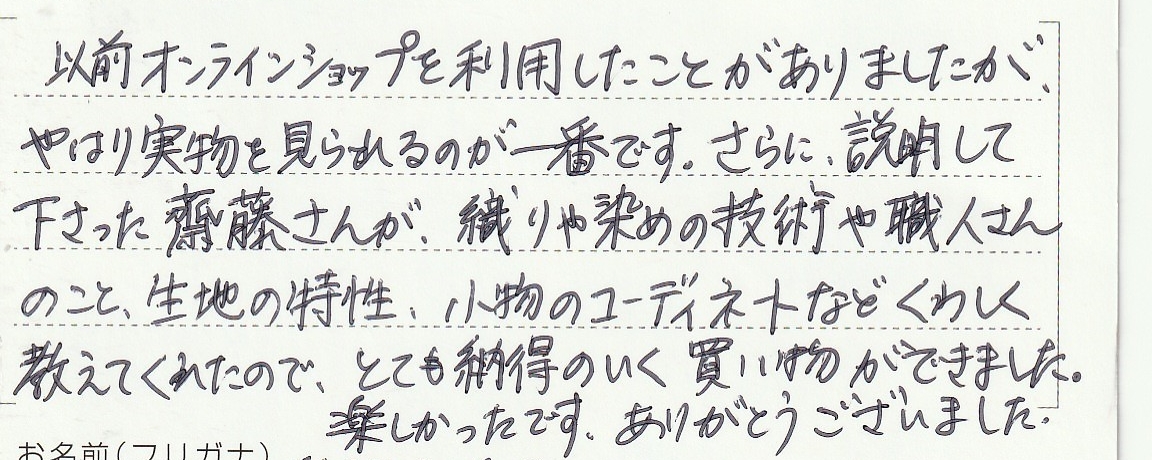 以前オンラインショップを利用したことがありましたが、
やはり実物を見られるのが一番です。さらに、説明して
下さった齋藤さんが、織りや染めの技術や職人さん
のこと、生地の特性、小物のコーディネトなどくわしく
教えてくれたので、とても納得のいく買い物ができました。
楽しかったです、ありがとうございました.
お名前(フリガナ)